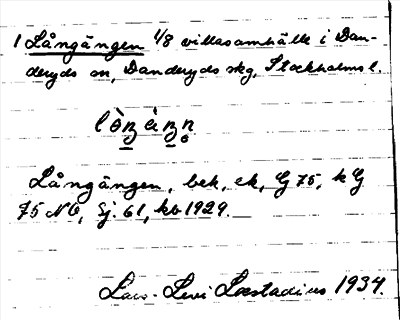 1 Långängen 1/8 villasamhälle i Dan-
deryds sn, Danderyds skg, Stockholms l.
lòŋàŋn
Långängen, bek, ek, G 75, k G
75 NO, Sj. 61, kb 1929.
Lars-Levi Læstadius 1934.